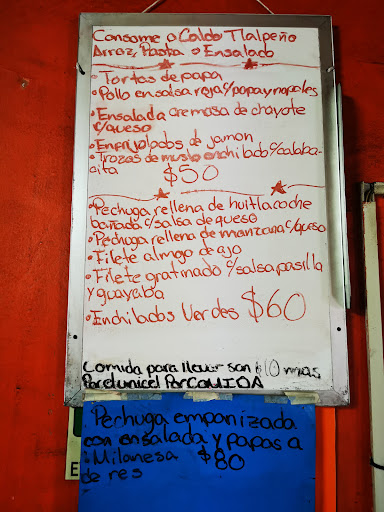 Consome o Caldo Tlalpeño
Arroz, Pasta o Ensalada
• Tortas de papa
• Pollo en salsa roja c/papa y nopales
• Ensalada cremosa de chayote
c/queso
• Enfrijoladas de jamon
• Trozos de muslo enchilado c/calaba-
cita $50
• Pechuga rellena de huitlacoche
bañada c/salsa de queso
• Pechuga rellena de manzana c/queso
• Filete al mojo de ajo
• Filete gratinado c/salsa pasilla
y guayaba
• Enchiladas Verdes $60
Comida para llevar son $10 mas
Por el unicel Por COMIDA
Pechuga empanizada
con ensalada y papas a
Milanesa $80
de res
E